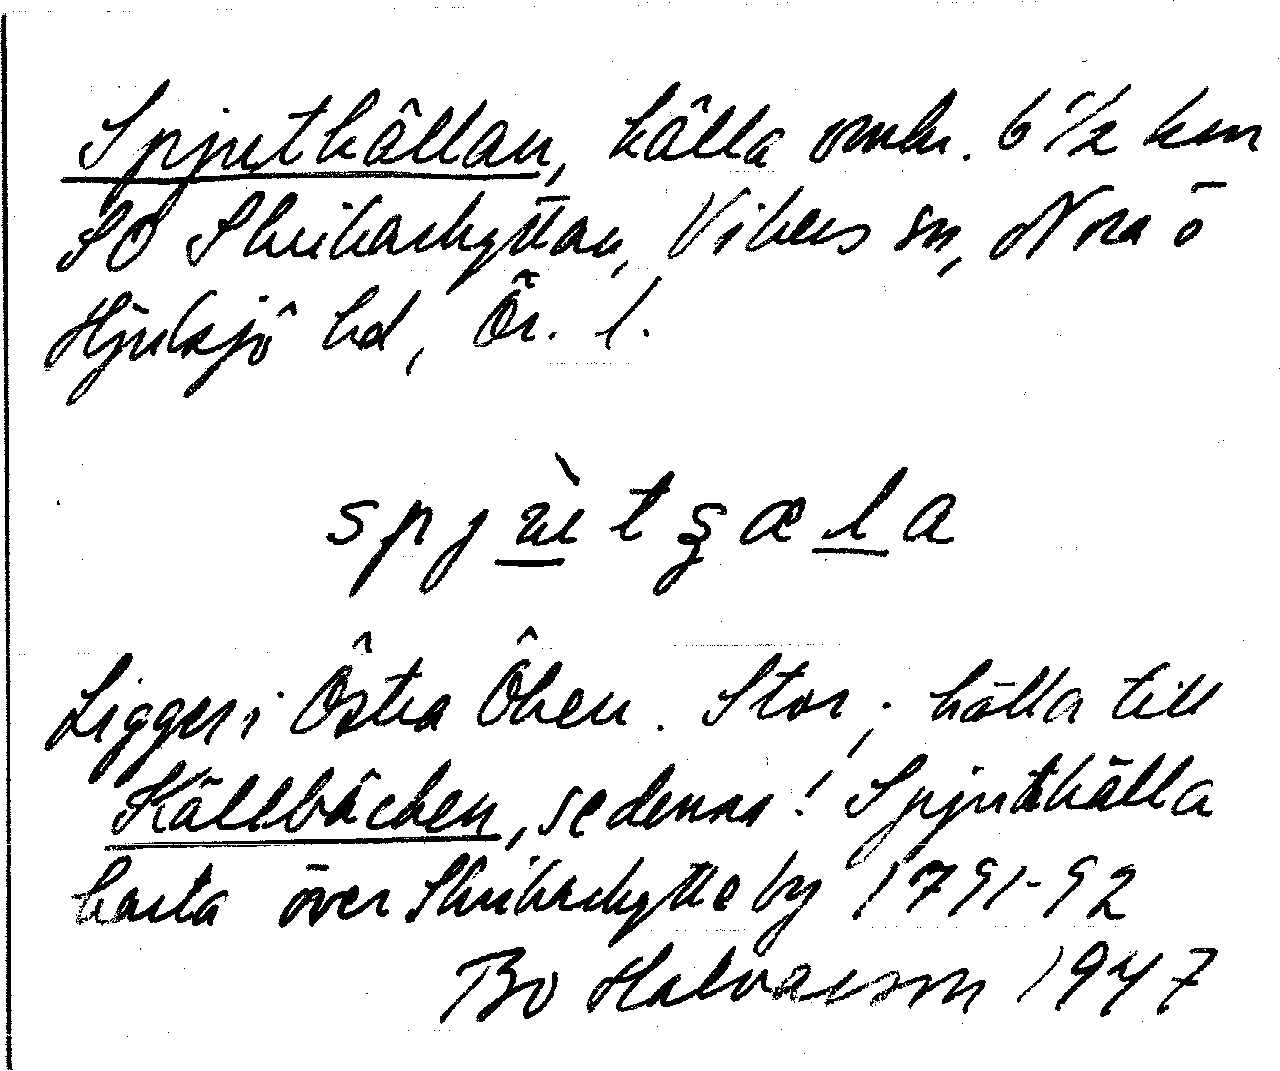 Spjutkällan, källa omkr. 6 1/2 km
SO Skrikarhyttan, Vikers sn, Nora o
Hjulsjö hd, Ör. l.
spjùtʂæla
Ligger i Östra Öken. Stor; källa till
Källbäcken, se denna! Spjutkälla
karta över Skrikarhytte by 1791-92
Bo Halvarson 1947